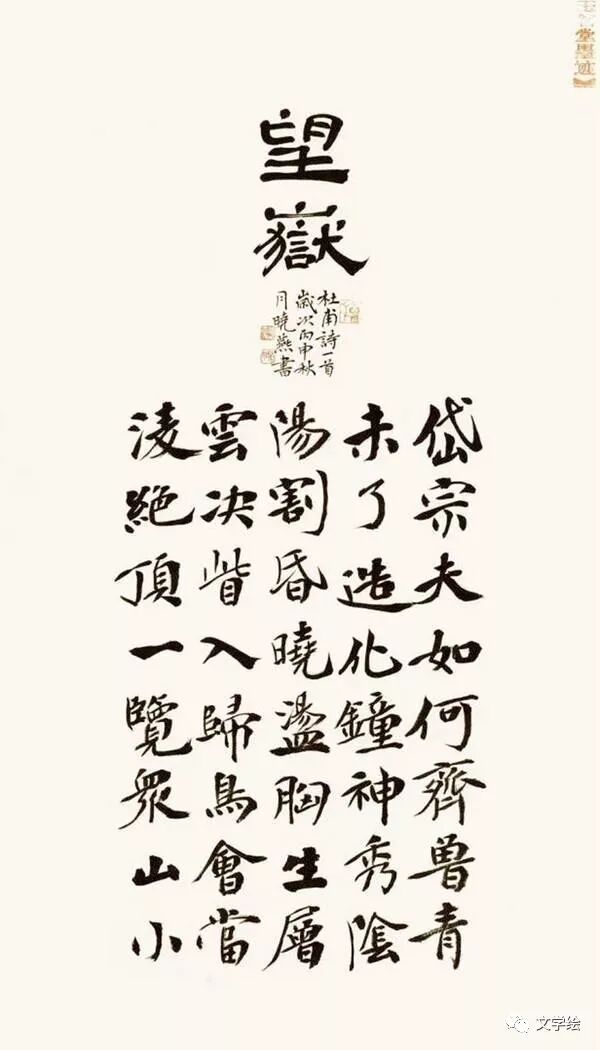 堂墨迹》
望
嶽
杜甫詩一首
歲次丙申秋
月曉燕書
岱宗夫如何齊魯青
未了造化鐘神秀陰
陽割昏曉盪胸生層
雲决眥入歸鳥會當
淩絕頂一覽衆山小
文学绘